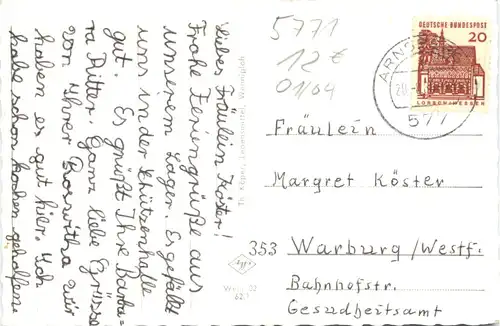 Liebes Fräulein Köster!
Frohe Feriengrüße aus
unserem Lager. Es gefällt
uns in der Schützenhalle
gut. Es grüßt Ihre Barba=
ra Ritter. Ganz liebe Grüsse
von Ihrer Roswitha wir
haben es gut hier. Ich
habe schon kochen geholfen.
5771
12 €
01/04
DEUTSCHE BUNDESPOST
20
LORSCH/HESSEN
ARNSB
577
Fräulein
Margret Köster
353 Warburg/Westf.
Bahnhofstr.
Gesundheitsamt
Agfa